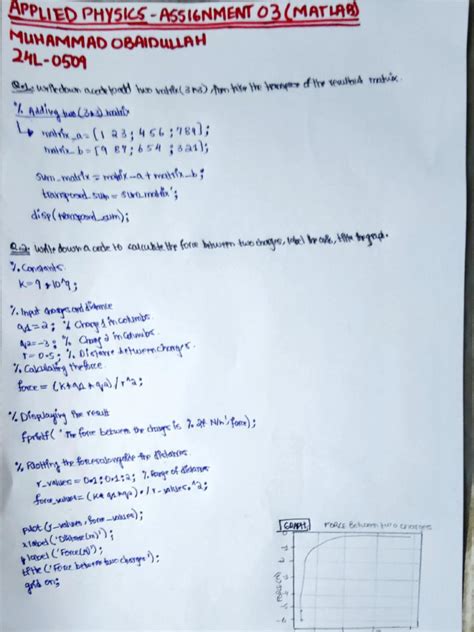 APPLIED PHYSICS - ASSIGNMENT 03 (MATLAB)
MUHAMMAD OBAIDULLAH
24L-0509
Q=1: write down a code to add two matrix (3x3), then take the transpose of the resultant matrix.
% Adding two (3x3) matrix
matrix_a = [1 2 3; 4 5 6; 7 8 9];
matrix_b = [9 8 7; 6 5 4; 3 2 1];
sum_matrix = matrix_a + matrix_b;
transposed_sum = sum_matrix';
disp(transposed_sum);
Q=2: write down a code to calculate the force between two charges, label the axis, title the graph.
% Constants
K = 9*10^9;
% Input charges and distance
q1 = 2; % Charge 1 in Columbs
q2 = -3; % Charge 2 in Columbs.
r = 0.5; % Distance between charges
% Calculating the force
force = (K*q1*q2)/r^2;
% Displaying the result
fprintf('The force between the charges is %.2f N/n', force);
% Plotting the forces alongside the distances
r_values = 0.1:0.1:2; % Range of distances
force_values = (K*q1*q2)./r_values.^2;
plot(r_values, force_values);
xlabel('Distance(m)');
ylabel('Force(N)');
title('Force between two charges');
grid on;
GRAPH
FORCE Between two charges
-1
-2
-3
-4
-5
-6
FORCE(N)